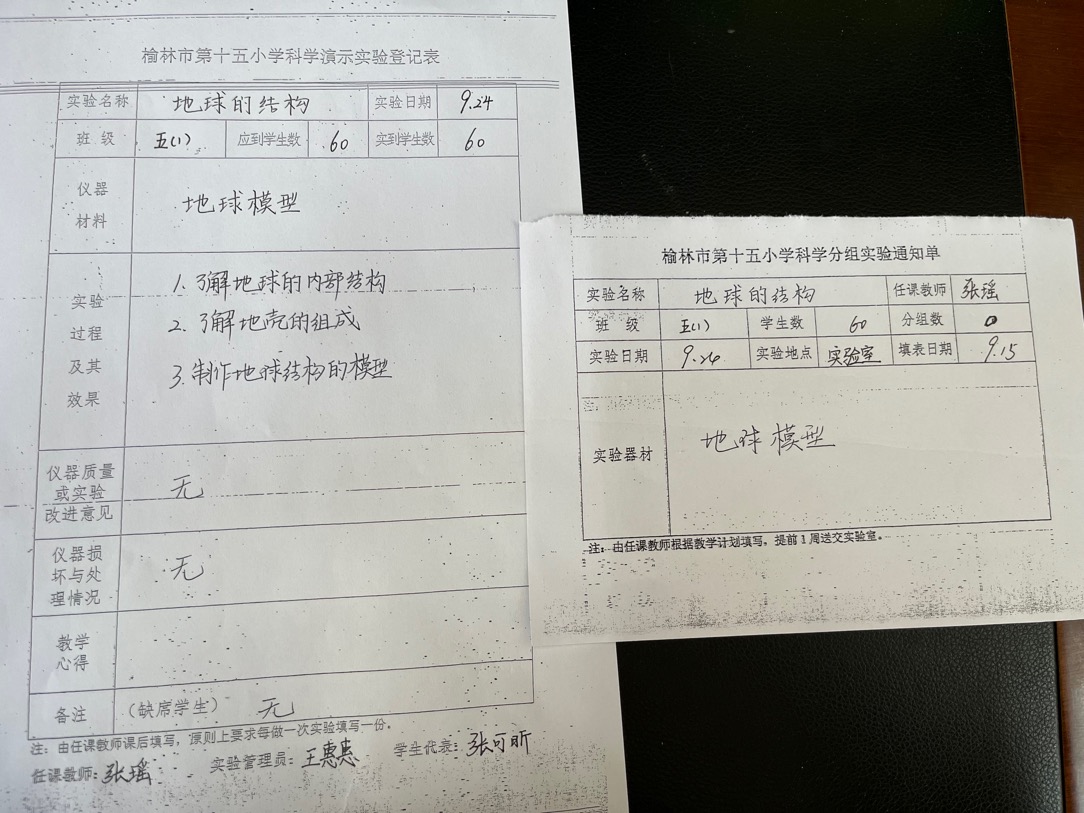 榆林市第十五小学科学演示实验登记表
实验名称 地球的结构 实验日期 9.24
班 级 五(1) 应到学生数 60 实到学生数 60
仪器
材料
地球模型
实验
过程
及其
效果
1. 了解地球的内部结构
2. 了解地壳的组成
3. 制作地球结构的模型
仪器质量
或实验
改进意见
无
仪器损
坏与处
理情况
无
教学
心得
备注 (缺席学生) 无
注:由任课教师课后填写,原则上要求每做一次实验填写一份。
任课教师:张瑶 实验管理员:王惠惠 学生代表:张可昕
榆林市第十五小学科学分组实验通知单
实验名称 地球的结构 任课教师 张瑶
班 级 五(1) 学生数 60 分组数 0
实验日期 9.24 实验地点 实验室 填表日期 9.15
实验器材 地球模型
注:由任课教师根据教学计划填写,提前1周送交实验室。